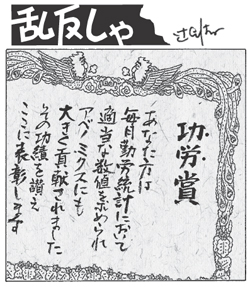 乱反しゃ
功労賞
あなたたちは
毎月勤労統計において
適当な数値を求められ
アベノミクスにも
大きく貢献されました
その功績を讃え
ここに表彰します